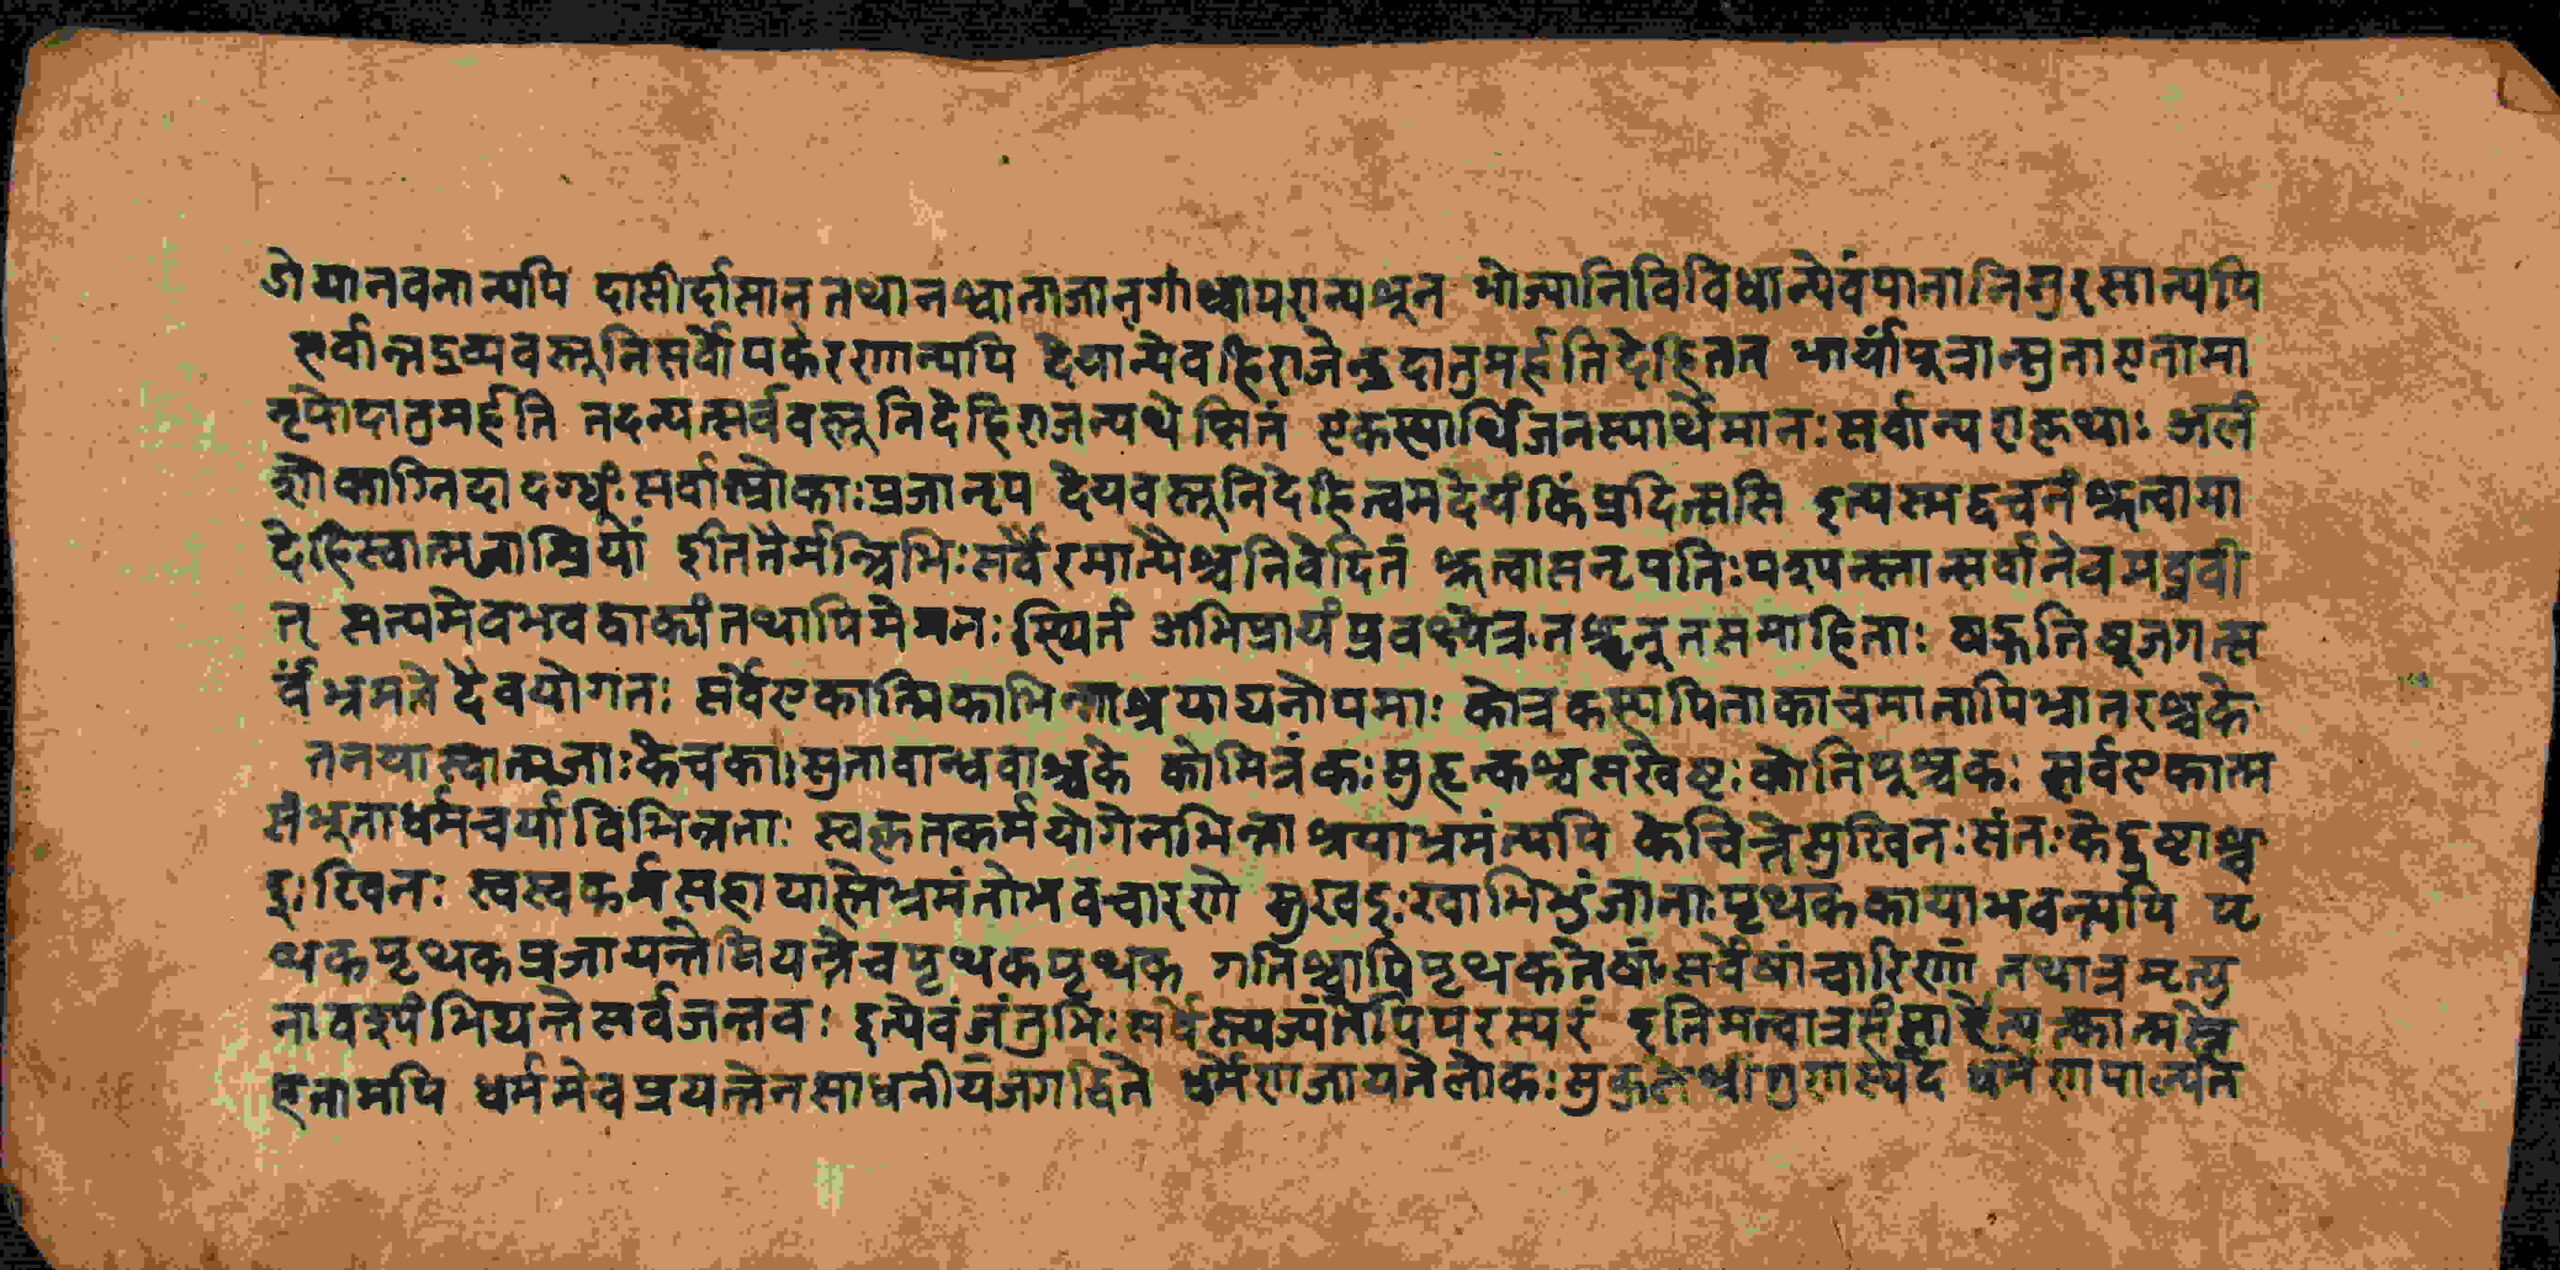 जोयानवनान्यपि दासीर्दासान् तथानश्वानाजानृगांश्चापरान्पशून् भोज्यानिविविधान्येवंपानानिसुरसान्यपि
सर्वान्नद्रव्यवस्तूनिसर्वोपकरणान्यपि देयान्येवहिराजेन्द्रदातुमर्हतिदेहितत् भार्यापुत्रान्सुताएतामा
नृपोदातुमर्हति तदन्यत्सर्ववस्तूनिदेहिराजन्यथेप्सितं एकस्यार्थिजनस्यार्थेमानः सर्वान्पराकृथाः अलं
शोकाग्निदादग्धुं सर्वांल्लोकाःप्रजानृप देयवस्तूनिदेहित्वमदेयंकिंप्रदित्ससि इत्यस्मद्वचनंश्रुत्वामा
देहिस्वात्मजांश्रियां इतितैर्मन्त्रिभिःसर्वैरमात्यैश्चनिवेदितं श्रुत्वासनृपतिःपश्यन्स्तान्सर्वानेवमब्रवी
त् सत्यमेवभवद्वाक्यंतथापिमेमनःस्थितं अभिप्रायंप्रवक्ष्येत्रतश्रृनुतसमाहिताः षड्गतिषूजगत्स
र्वंभ्रमतेदैवयोगतः सर्वेएकात्मिकाभिन्नाश्रयाद्यतोपमाः कोत्रकस्यपिताकाचमातापिभ्रातरश्चके
तनयास्वात्मजाःकेचकाःसुतावान्धवाश्चके कोमित्रंकःसुहृत्कश्चसखेष्टःकोनिपूश्चकः सर्वएकात्म
संभूताधर्मचर्याविभिन्नताः स्वकृतकर्मयोगेनभिन्नाश्रयाभ्रमंत्यपि केचित्तेसुखिनःसंतःकेदुष्टाश्च
दुःखिनः स्वस्वकर्मसहायास्तेभ्रमंतोभवचारणे सुखदुःखाभिभुंजानाःपृथककायाभवन्त्यपि पृ
थकपृथकप्रजायन्तेम्रियन्तेचपृथकपृथक गतिश्चापिपृथकतेषांसर्वेषांचारिणां तथात्रमृत्यु
नावश्यंभिद्यन्तेसर्वजन्तवः इत्येवंजंतुभिःसर्वेस्त्यज्यंतेपिपरस्परं इतिमत्वात्रसंसारेत्यक्तात्मस्ने
हतामपि धर्ममेवप्रयत्नेनसाधनीयंजगद्धिते धर्मेणजायतेलोकःसुकुलेश्रीगुणास्पदे धर्मेणपाल्यते